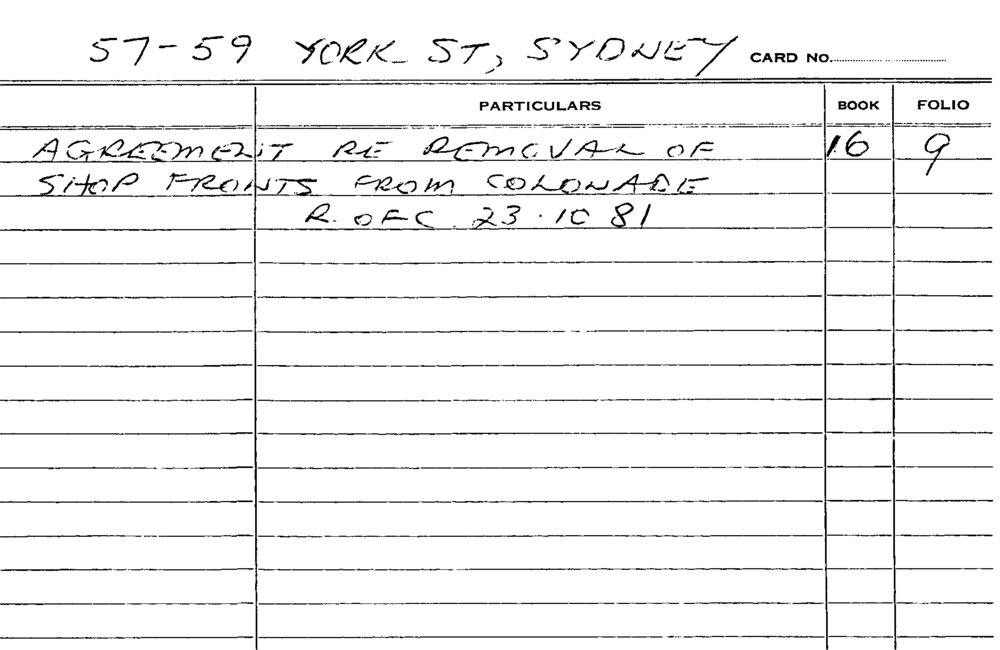 57-59 YORK ST, SYDNEY CARD NO.
PARTICULARS BOOK FOLIO
AGREEMENT RE REMOVAL OF 16 9
SHOP FRONTS FROM COLONADE
R. OF C. 23.10 81